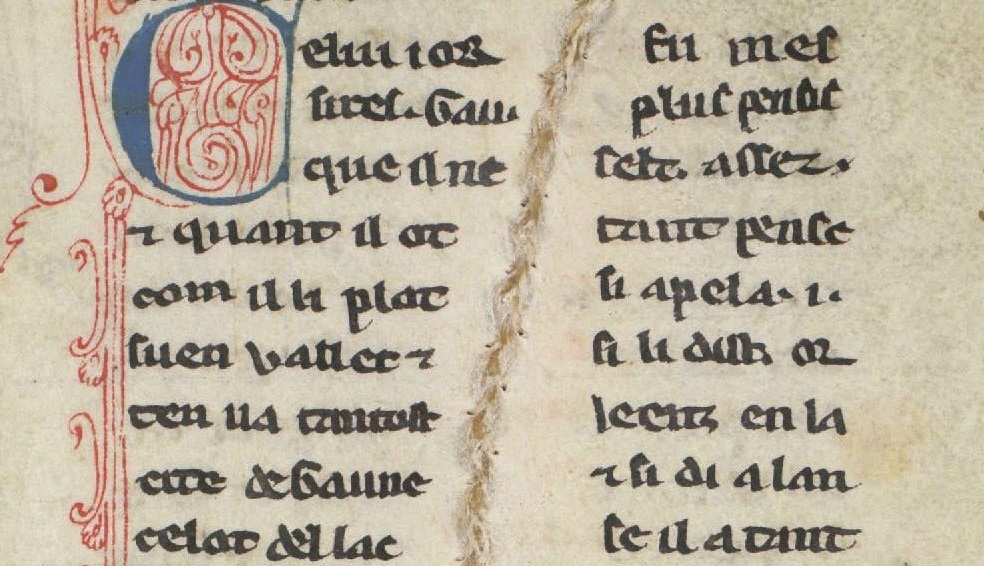 Celui ior fu mes
sires. Gau. plus pensis
que il ne selt. assez.
⁊ quant il ot tant pense
com il li plot si apela. i.
suen vallet ⁊ si li dist. or
ten ua tantost leenz en la
cite de Gaune ⁊ si di a lan
celot del lac se il a tant